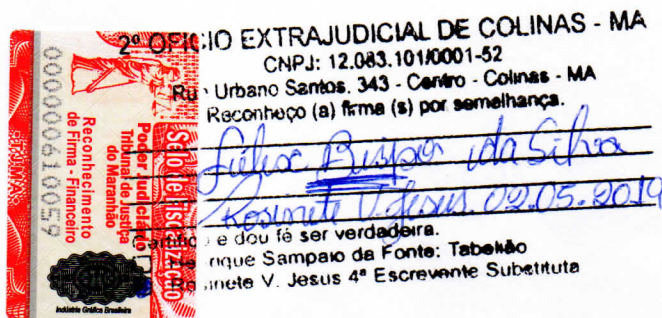 2º OFICIO EXTRAJUDICIAL DE COLINAS - MA
CNPJ: 12.083.101/0001-52
Rua Urbano Santos, 343 - Centro - Colinas - MA
Reconheço (a) firma (s) por semelhança.
Bispo da Silva
Rosinete V. Jesus. 02.05.2019
Certifico e dou fé ser verdadeira.
Henrique Sampaio da Fonte: Tabelião
Rosinete V. Jesus 4ª Escrevente Substituta
Selo de Fiscalização
Poder Judiciário
Tribunal de Justiça
do Maranhão
Reconhecimento
de Firma - Financeiro
00000000610059
Indústria Gráfica Brasileira